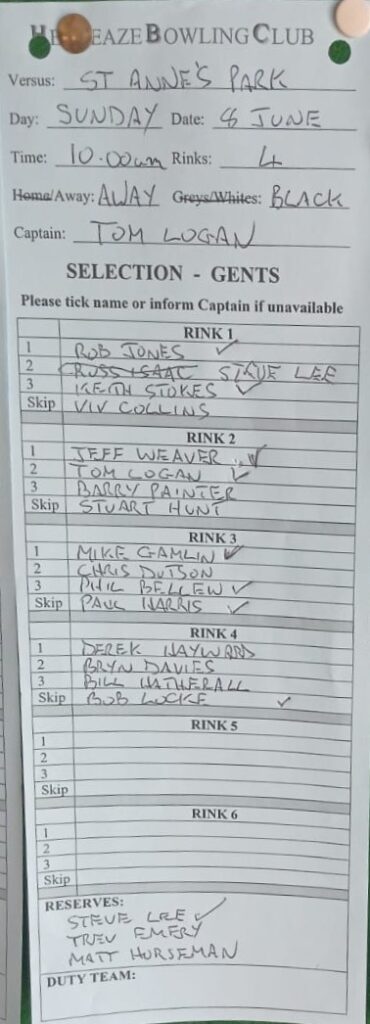 EAZE BOWLING CLUB
Versus: ST ANNE'S PARK
Day: SUNDAY Date: 8 JUNE
Time: 10.00am Rinks: 4
Home/Away: AWAY Greys/Whites: BLACK
Captain: TOM LOGAN
SELECTION - GENTS
Please tick name or inform Captain if unavailable
RINK 1
1 ROB JONES ✓
2 ROSS ISAAC STEVE LEE
3 KEITH STOKES ✓
Skip VIV COLLINS
RINK 2
1 JEFF WEAVER ✓
2 TOM LOGAN ✓
3 BARRY PAINTER
Skip STUART HUNT
RINK 3
1 MIKE GAMLIN ✓
2 CHRIS DUTSON
3 PHIL BELLEW ✓
Skip PAUL HARRIS ✓
RINK 4
1 DEREK HAYWARD
2 BRYN DAVIES
3 BILL HATHERALL
Skip BOB LOCKE ✓
RINK 5
1
2
3
Skip
RINK 6
1
2
3
Skip
RESERVES:
STEVE LEE ✓
TREV EMERY
MATT HORSEMAN
DUTY TEAM: